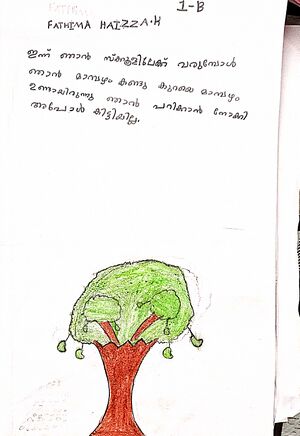 1-B
FATHIMA HAIZZA.K
ഇന്ന് ഞാൻ സ്ക്കൂളിലേക്ക് വരുമ്പോൾ
ഞാൻ മാമ്പഴം കണ്ടു കുറയെ മാമ്പഴം
ഉണ്ടായിരുന്നു ഞാൻ പറിക്കാൻ നോക്കി
അപ്പോൾ കിട്ടിയില്ല.